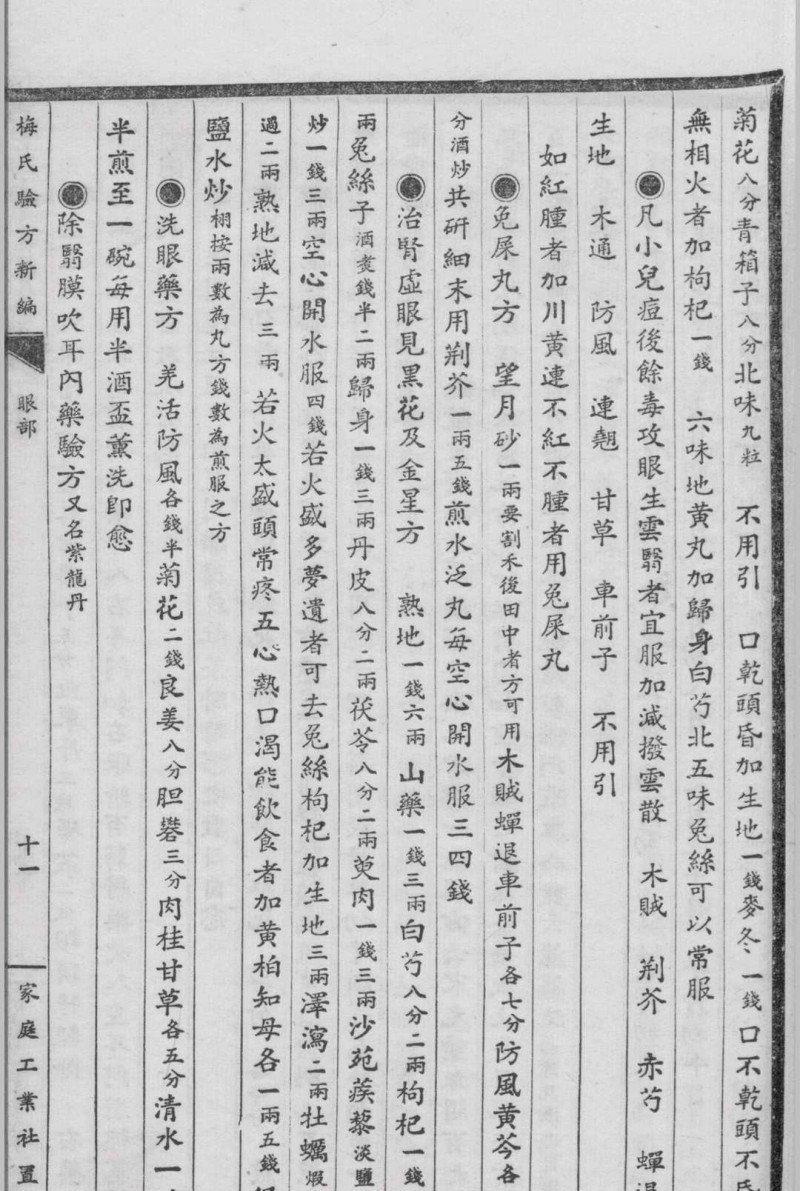 菊花八分青箱子八分北味九粒　不用引　口乾頭昏加生地一錢麥冬一錢口不乾頭不昏
無相火者加枸杞一錢　六味地黄丸加歸身白芍北五味兔絲可以常服
●凡小兒痘後餘毒攻眼生雲翳者宜服加減撥雲散　木賊　荆芥　赤芍　蟬退
生地　木通　防風　連翹　甘草　車前子　不用引
如紅腫者加川黄連不紅不腫者用兔屎丸
●兔屎丸方　望月砂一兩要割禾後田中者方可用木賊蟬退車前子各七分防風黄芩各
分酒炒共研細末用荆芥一兩五錢煎水泛丸每空心開水服三四錢
●治腎虛眼見黑花及金星方　熟地一錢六兩山藥一錢三兩白芍八分二兩枸杞一錢
兩兔絲子酒煮錢半二兩歸身一錢三兩丹皮八分二兩茯苓八分二兩萸肉一錢三兩沙苑蒺藜淡鹽
炒一錢三兩空心開水服四錢若火盛多夢遺者可去兔絲枸杞加生地三兩澤瀉二兩牡蠣煆
過二兩熟地減去三兩若火太盛頭常疼五心熱口渴能飲食者加黄柏知母各一兩五錢
鹽水炒栩按兩數為丸方錢數為煎服之方
●洗眼藥方　羌活防風各錢半菊花二錢良姜八分胆礬三分肉桂甘草各五分清水一
半煎至一碗每用半酒盃薰洗卽愈
●除翳膜吹耳內藥驗方又名紫龍丹
梅氏驗方新編　眼部　十一　家庭工業社置